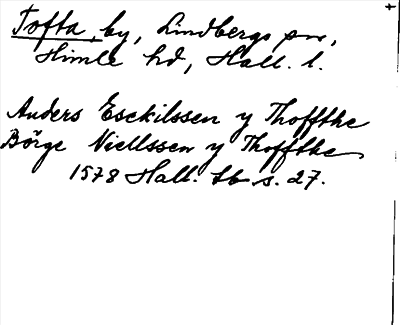 Tofta, by, Lindbergs sn,
Himle hd, Hall. l.
Anders Esekilssen y Thoffthe
Börge Niellssen y Thoffthe
1578 Hall. Lb s. 27.